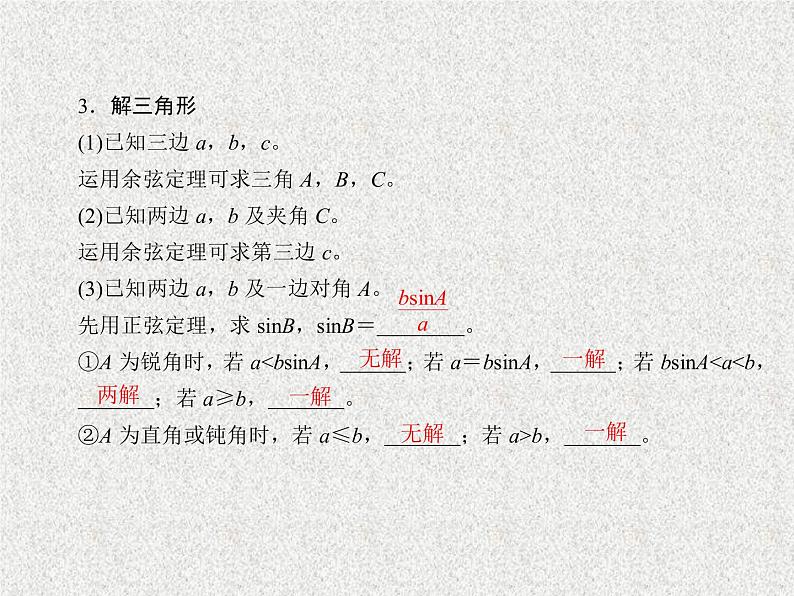 3．解三角形
(1)已知三边 a，b，c。
运用余弦定理可求三角 A，B，C。
(2)已知两边 a，b 及夹角 C。
运用余弦定理可求第三边 c。
(3)已知两边 a，b 及一边对角 A。
先用正弦定理，求 sinB，sinB＝bsinA/a。
①A 为锐角时，若 a<bsinA，无解；若 a＝bsinA，一解；若 bsinA<a<b，
两解；若 a≥b，一解。
②A 为直角或钝角时，若 a≤b，无解；若 a>b，一解。